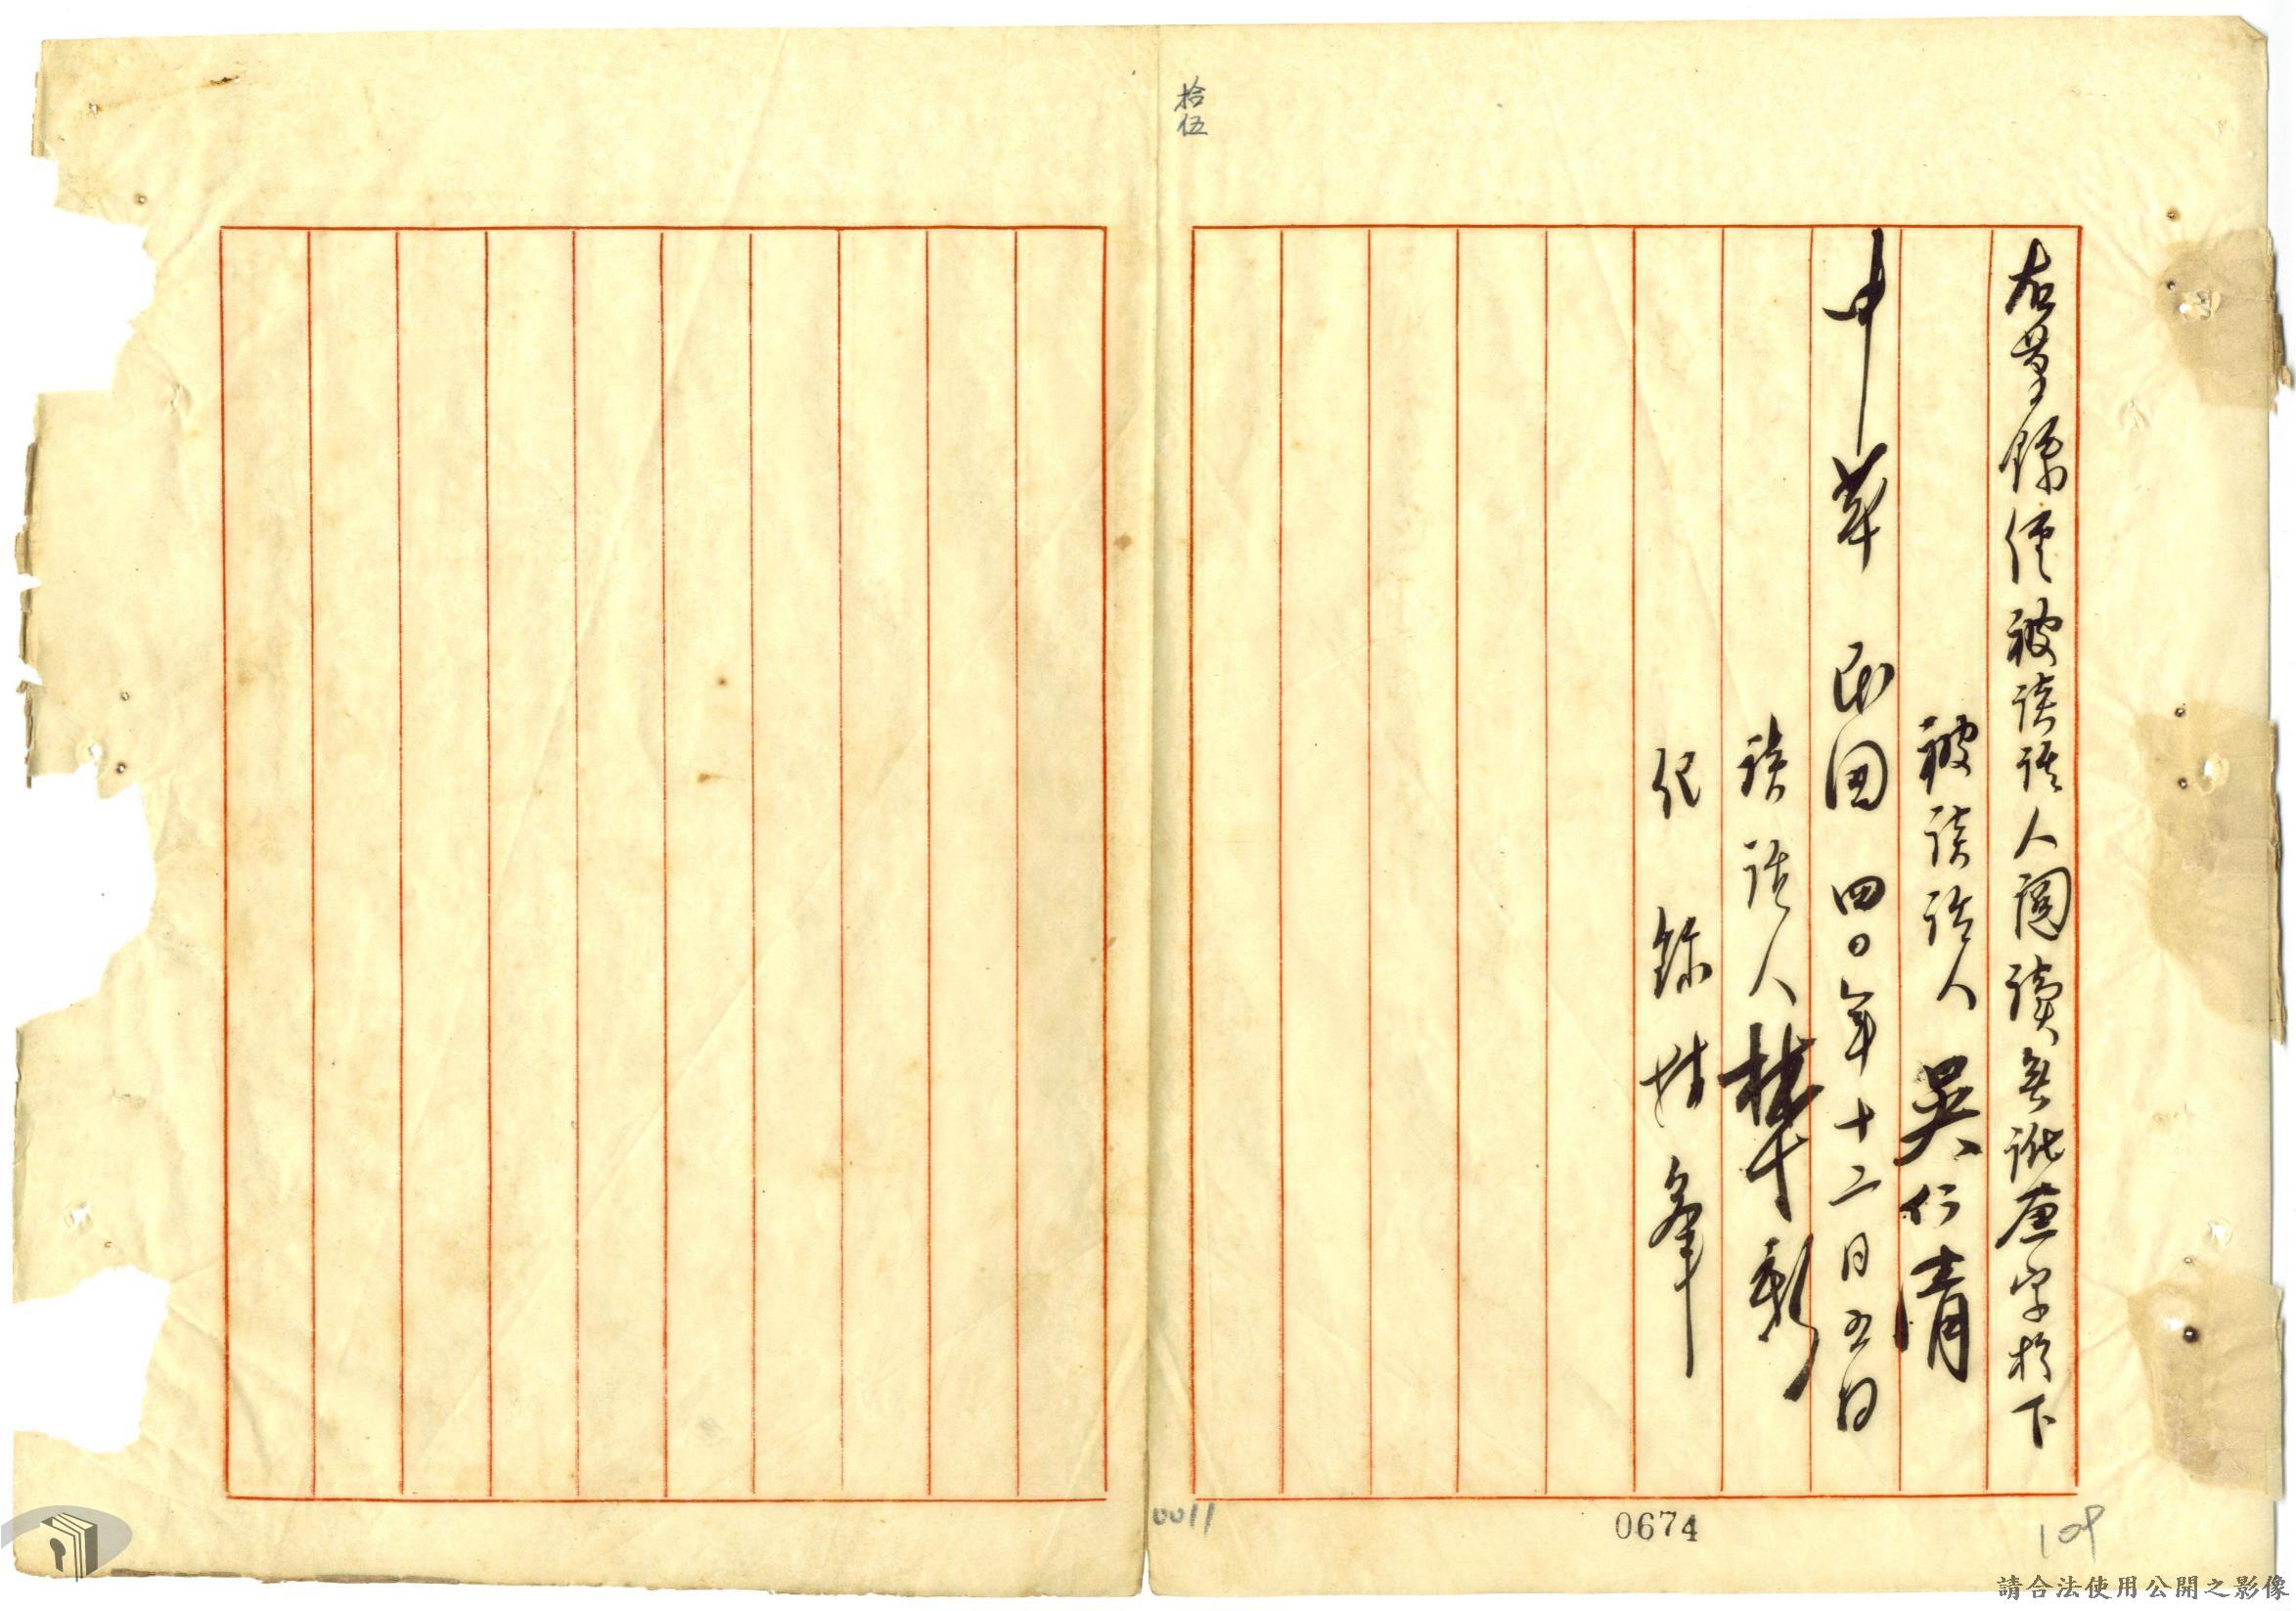 拾伍
右筆錄經被談話人閱讀無訛簽字於下
被談話人 吳行清
中華民國四〇年十二月五日
談話人
紀錄
0011
0674
109
請合法使用公開之影像